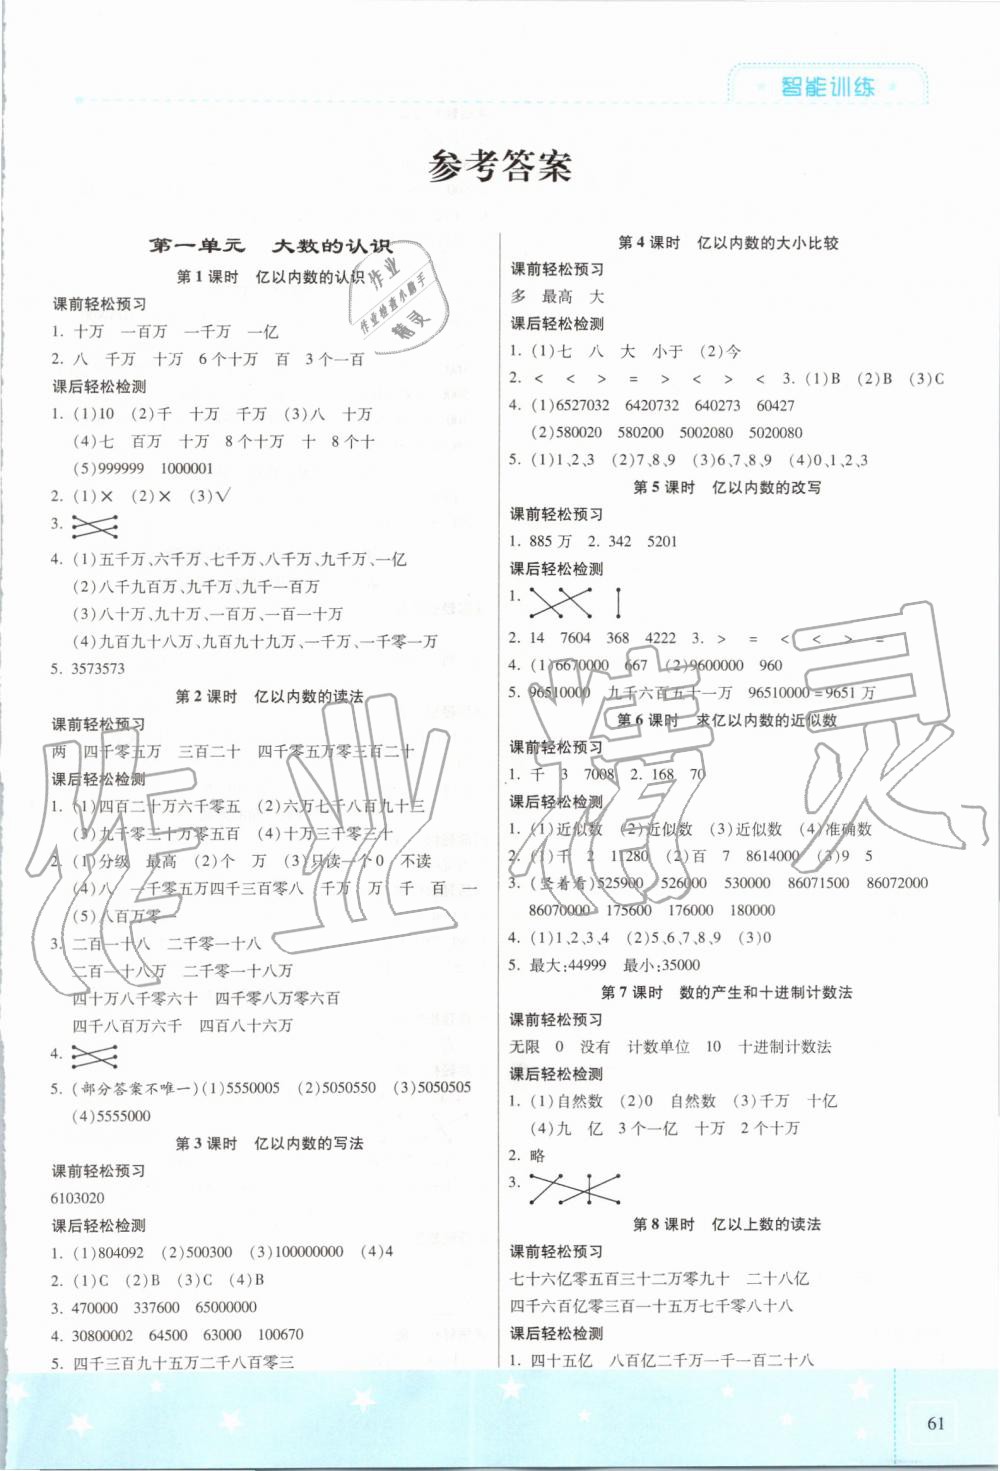 智能训练
参考答案
第一单元 大数的认识
第1课时 亿以内数的认识
课前轻松预习
1. 十万 一百万 一千万 一亿
2. 八 千万 十万 6个十万 百 3个一百
课后轻松检测
1. (1)10 (2)千 十万 千万 (3)八 十万
(4)七 百万 十万 8个十万 十 8个十
(5)999999 1000001
2. (1)× (2)× (3)√
3.
4. (1)五千万、六千万、七千万、八千万、九千万、一亿
(2)八千九百万、九千万、九千一百万
(3)八十万、九十万、一百万、一百一十万
(4)九百九十八万、九百九十九万、一千万、一千零一万
5. 3573573
第2课时 亿以内数的读法
课前轻松预习
两 四千零五万 三百二十 四千零五万零三百二十
课后轻松检测
1. (1)四百二十万六千零五 (2)六万七千八百九十三
(3)九千零三十万零五百 (4)十万三千零三十
2. (1)分级 最高 (2)个 万 (3)只读一个0 不读
(4)八 一千零五万四千三百零八 千万 万 千 百 一
(5)八百万零一
3. 二百一十八 二千零一十八
二百一十八万 二千零一十八万
四十万八千零六十 四千零八万零六百
四千八百万六千 四百八十六万
4.
5. (部分答案不唯一)(1)5550005 (2)5050550 (3)5050505
(4)5555000
第3课时 亿以内数的写法
课前轻松预习
6103020
课后轻松检测
1. (1)804092 (2)500300 (3)100000000 (4)4
2. (1)C (2)B (3)C (4)B
3. 470000 337600 65000000
4. 30800002 64500 63000 100670
5. 四千三百九十五万二千八百零三
第4课时 亿以内数的大小比较
课前轻松预习
多 最高 大
课后轻松检测
1. (1)七 八 大 小于 (2)今
2. < < > = > < > < 3. (1)B (2)B (3)C
4. (1)6527032 6420732 640273 60427
(2)580020 580200 5002080 5020080
5. (1)1、2、3 (2)7、8、9 (3)6、7、8、9 (4)0、1、2、3
第5课时 亿以内数的改写
课前轻松预习
1. 885万 2. 342 5201
课后轻松检测
1.
2. 14 7604 368 4222 3. > = < < > =
4. (1)6670000 667 (2)9600000 960
5. 96510000 九千六百五十一万 96510000=9651万
第6课时 求亿以内数的近似数
课前轻松预习
1. 千 3 7008 2. 168 70
课后轻松检测
1. (1)近似数 (2)近似数 (3)近似数 (4)准确数
2. (1)千 2 11280 (2)百 7 8614000 (3)9 5
3. (竖着看)525900 526000 530000 86071500 86072000
86070000 175600 176000 180000
4. (1)1、2、3、4 (2)5、6、7、8、9 (3)0
5. 最大:44999 最小:35000
第7课时 数的产生和十进制计数法
课前轻松预习
无限 0 没有 计数单位 10 十进制计数法
课后轻松检测
1. (1)自然数 (2)0 自然数 (3)千万 十亿
(4)九 亿 3个一亿 十万 2个十万
2. 略
3.
第8课时 亿以上数的读法
课前轻松预习
七十六亿零五百三十二万零九十 二十八亿
四千六百亿零三百一十五万七千零八十八
课后轻松检测
1. 四十五亿 八百亿二千万一千一百二十八
61
作业检查小助手
作业精灵